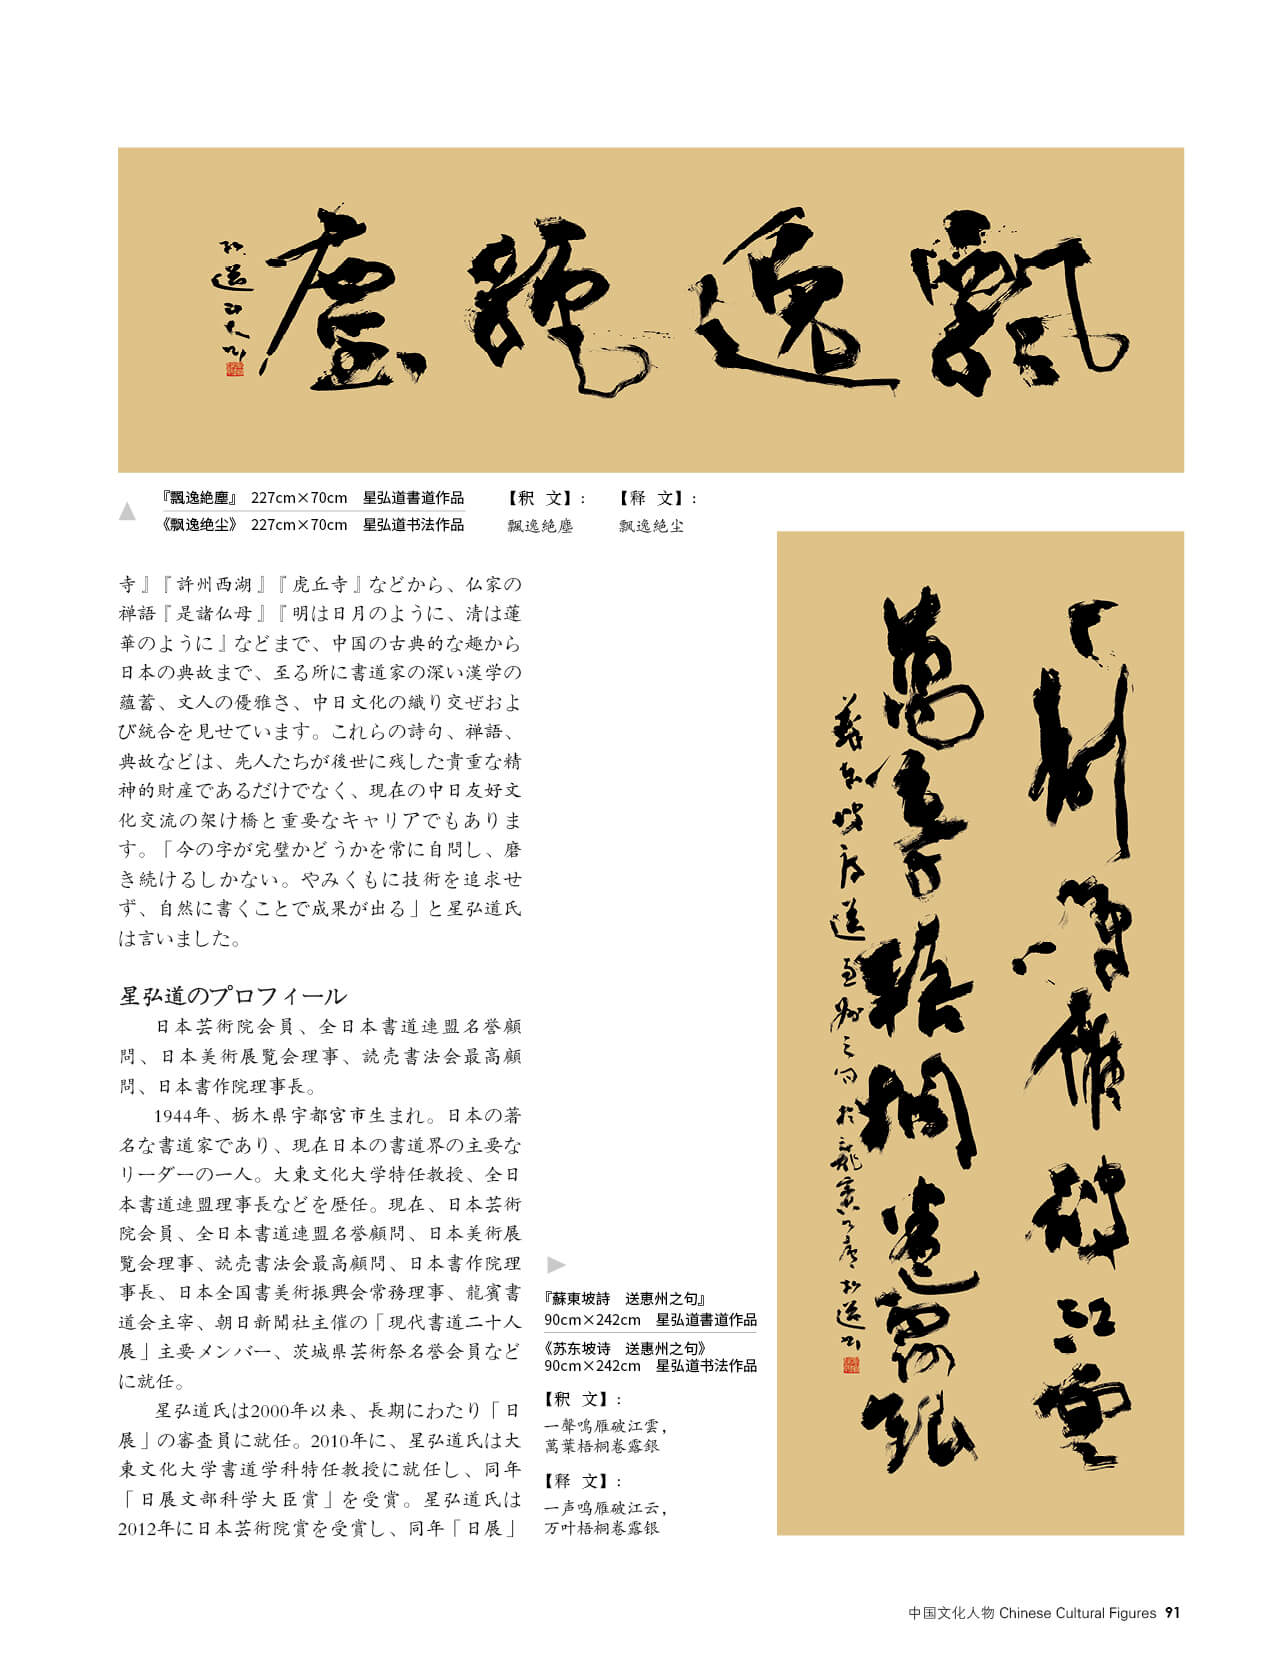 飄逸絶塵
『飄逸絶塵』 227cm×70cm 星弘道書道作品
《飘逸绝尘》 227cm×70cm 星弘道书法作品
【釈 文】:
飄逸絶塵
【释 文】:
飘逸绝尘
寺』『許州西湖』『虎丘寺』などから、仏家の
禅語『是諸仏母』『明は日月のように、清は蓮
華のように』などまで、中国の古典的な趣から
日本の典故まで、至る所に書道家の深い漢学の
蘊蓄、文人の優雅さ、中日文化の織り交ぜおよ
び統合を見せています。これらの詩句、禅語、
典故などは、先人たちが後世に残した貴重な精
神的財産であるだけでなく、現在の中日友好文
化交流の架け橋と重要なキャリアでもありま
す。「今の字が完璧かどうかを常に自問し、磨
き続けるしかない。やみくもに技術を追求せ
ず、自然に書くことで成果が出る」と星弘道氏
は言いました。
星弘道のプロフィール
日本芸術院会員、全日本書道連盟名誉顧
問、日本美術展覧会理事、読売書法会最高顧
問、日本書作院理事長。
1944年、栃木県宇都宮市生まれ。日本の著
名な書道家であり、現在日本の書道界の主要な
リーダーの一人。大東文化大学特任教授、全日
本書道連盟理事長などを歴任。現在、日本芸術
院会員、全日本書道連盟名誉顧問、日本美術展
覧会理事、読売書法会最高顧問、日本書作院理
事長、日本全国書美術振興会常務理事、龍賓書
道会主宰、朝日新聞社主催の「現代書道二十人
展」主要メンバー、茨城県芸術祭名誉会員など
に就任。
星弘道氏は2000年以来、長期にわたり「日
展」の審査員に就任。2010年に、星弘道氏は大
東文化大学書道学科特任教授に就任し、同年
「日展文部科学大臣賞」を受賞。星弘道氏は
2012年に日本芸術院賞を受賞し、同年「日展」
『蘇東坡詩 送惠州之句』
90cm×242cm 星弘道書道作品
《苏东坡诗 送惠州之句》
90cm×242cm 星弘道书法作品
【釈 文】:
一聲鳴雁破江雲,
萬葉梧桐卷露銀
【释 文】:
一声鸣雁破江云,
万叶梧桐卷露银
一聲鳴雁破江雲
萬葉梧桐卷露銀
中国文化人物 Chinese Cultural Figures 91